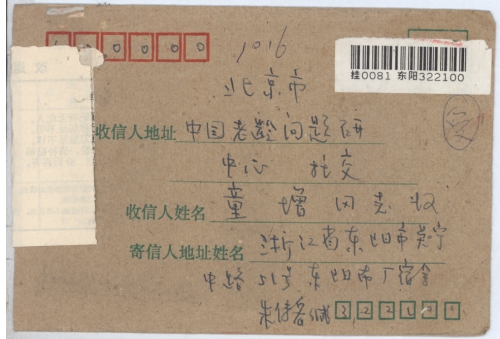 100000
1016
挂0081 东阳322100
北京市
收信人地址 中国老龄问题研
中心 托交
收信人姓名 童增同志收
寄信人地址姓名 浙江省东阳市吴宁
中路51号东阳市厂宿舍
朱 322100